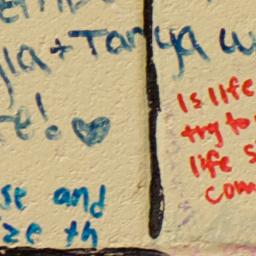 + Tanya
!
se and
ze th
Is life
try to
life s
com